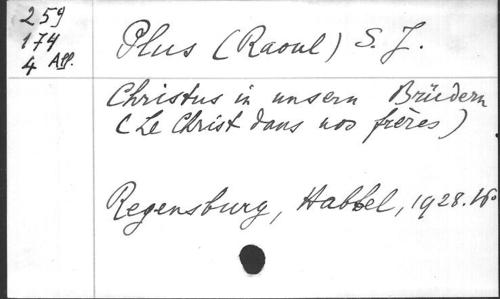 259
174
4 App.
Plus (Raoul) S. J.
Christus in unsern Brüdern
(Le Christ dans nos frères)
Regensburg, Habbel, 1928. 16°